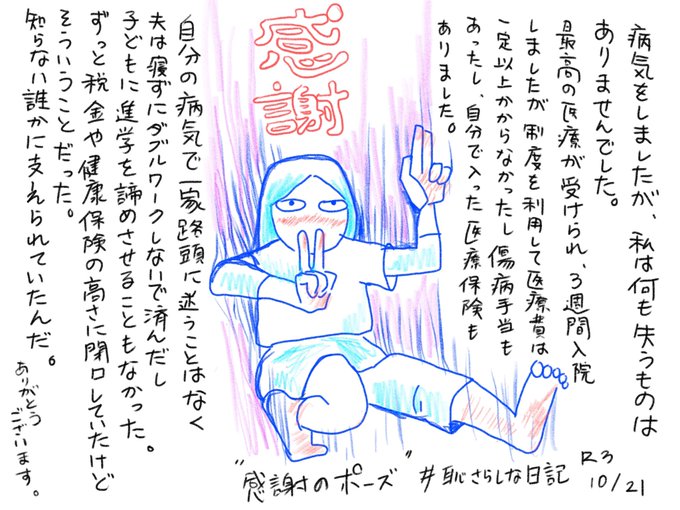 感謝
病気をしましたが、私は何も失うものは
ありませんでした。
最高の医療が受けられ、3週間入院
しましたが制度を利用して医療費は
一定以上かからなかったし傷病手当も
あったし、自分で入った医療保険も
ありました。
自分の病気で一家路頭に迷うことはなく
夫は寝ずにダブルワークしないで済んだし
子どもに進学を諦めさせることもなかった。
ずっと税金や健康保険の高さに閉口していたけど
そういうことだった。
知らない誰かに支えられていたんだ。
ありがとう
ございます。
"感謝のポーズ"
#恥さらしな日記
R3
10/21